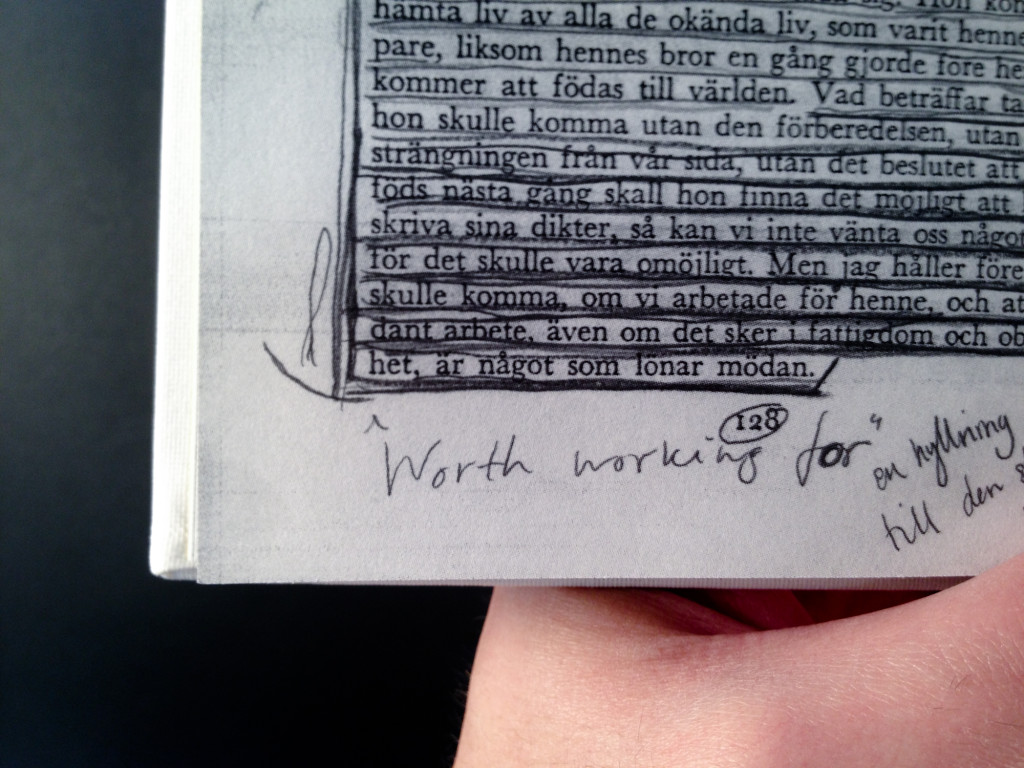 hämta liv av alla de okända liv, som varit henne
pare, liksom hennes bror en gång gjorde före he
kommer att födas till världen. Vad beträffar ta
hon skulle komma utan den förberedelsen, utan
strängningen från vår sida, utan det beslutet att
föds nästa gång skall hon finna det möjligt att
skriva sina dikter, så kan vi inte vänta oss något
för det skulle vara omöjligt. Men jag håller före
skulle komma, om vi arbetade för henne, och at
dant arbete, även om det sker i fattigdom och ob
het, är något som lönar mödan.
128
"Worth working for"
en hyllning
till den